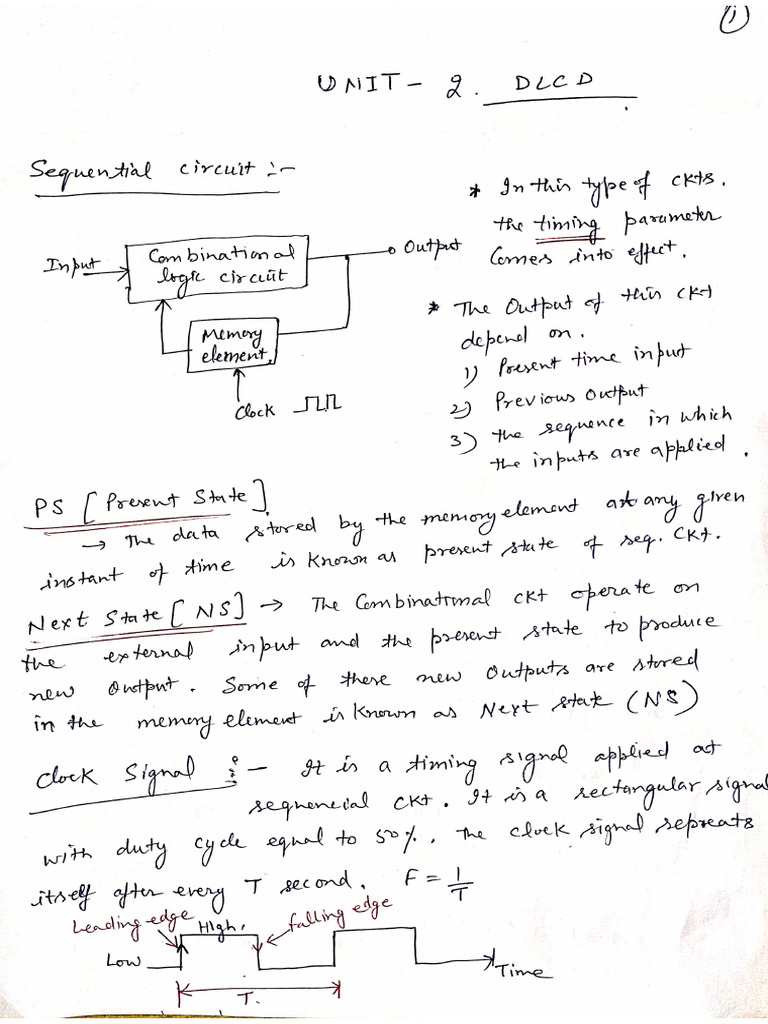 1
UNIT - 2. DLCD
Sequential circuit :-
Input
Combinational
logic circuit
Output
Memory
element.
Clock
* In this type of ckts.
the timing parameter
Comes into effect.
* The Output of this ckt
depend on.
1) Present time input
2) Previous Output
3) the sequence in which
the inputs are applied.
PS [Present State]
→ The data stored by the memory element at any given
instant of time is known as present state of seq. ckt.
Next State [NS] → The Combinational ckt operate on
the external input and the present state to produce
new output. Some of these new outputs are stored
in the memory element is known as Next state (NS)
Clock Signal :- It is a timing signal applied at
sequenecial ckt. It is a rectangular signal
with duty cycle equal to 50%. The clock signal sepreats
itself after every T second. F = 1/T
Leading edge High, falling edge
Low
Time
T.